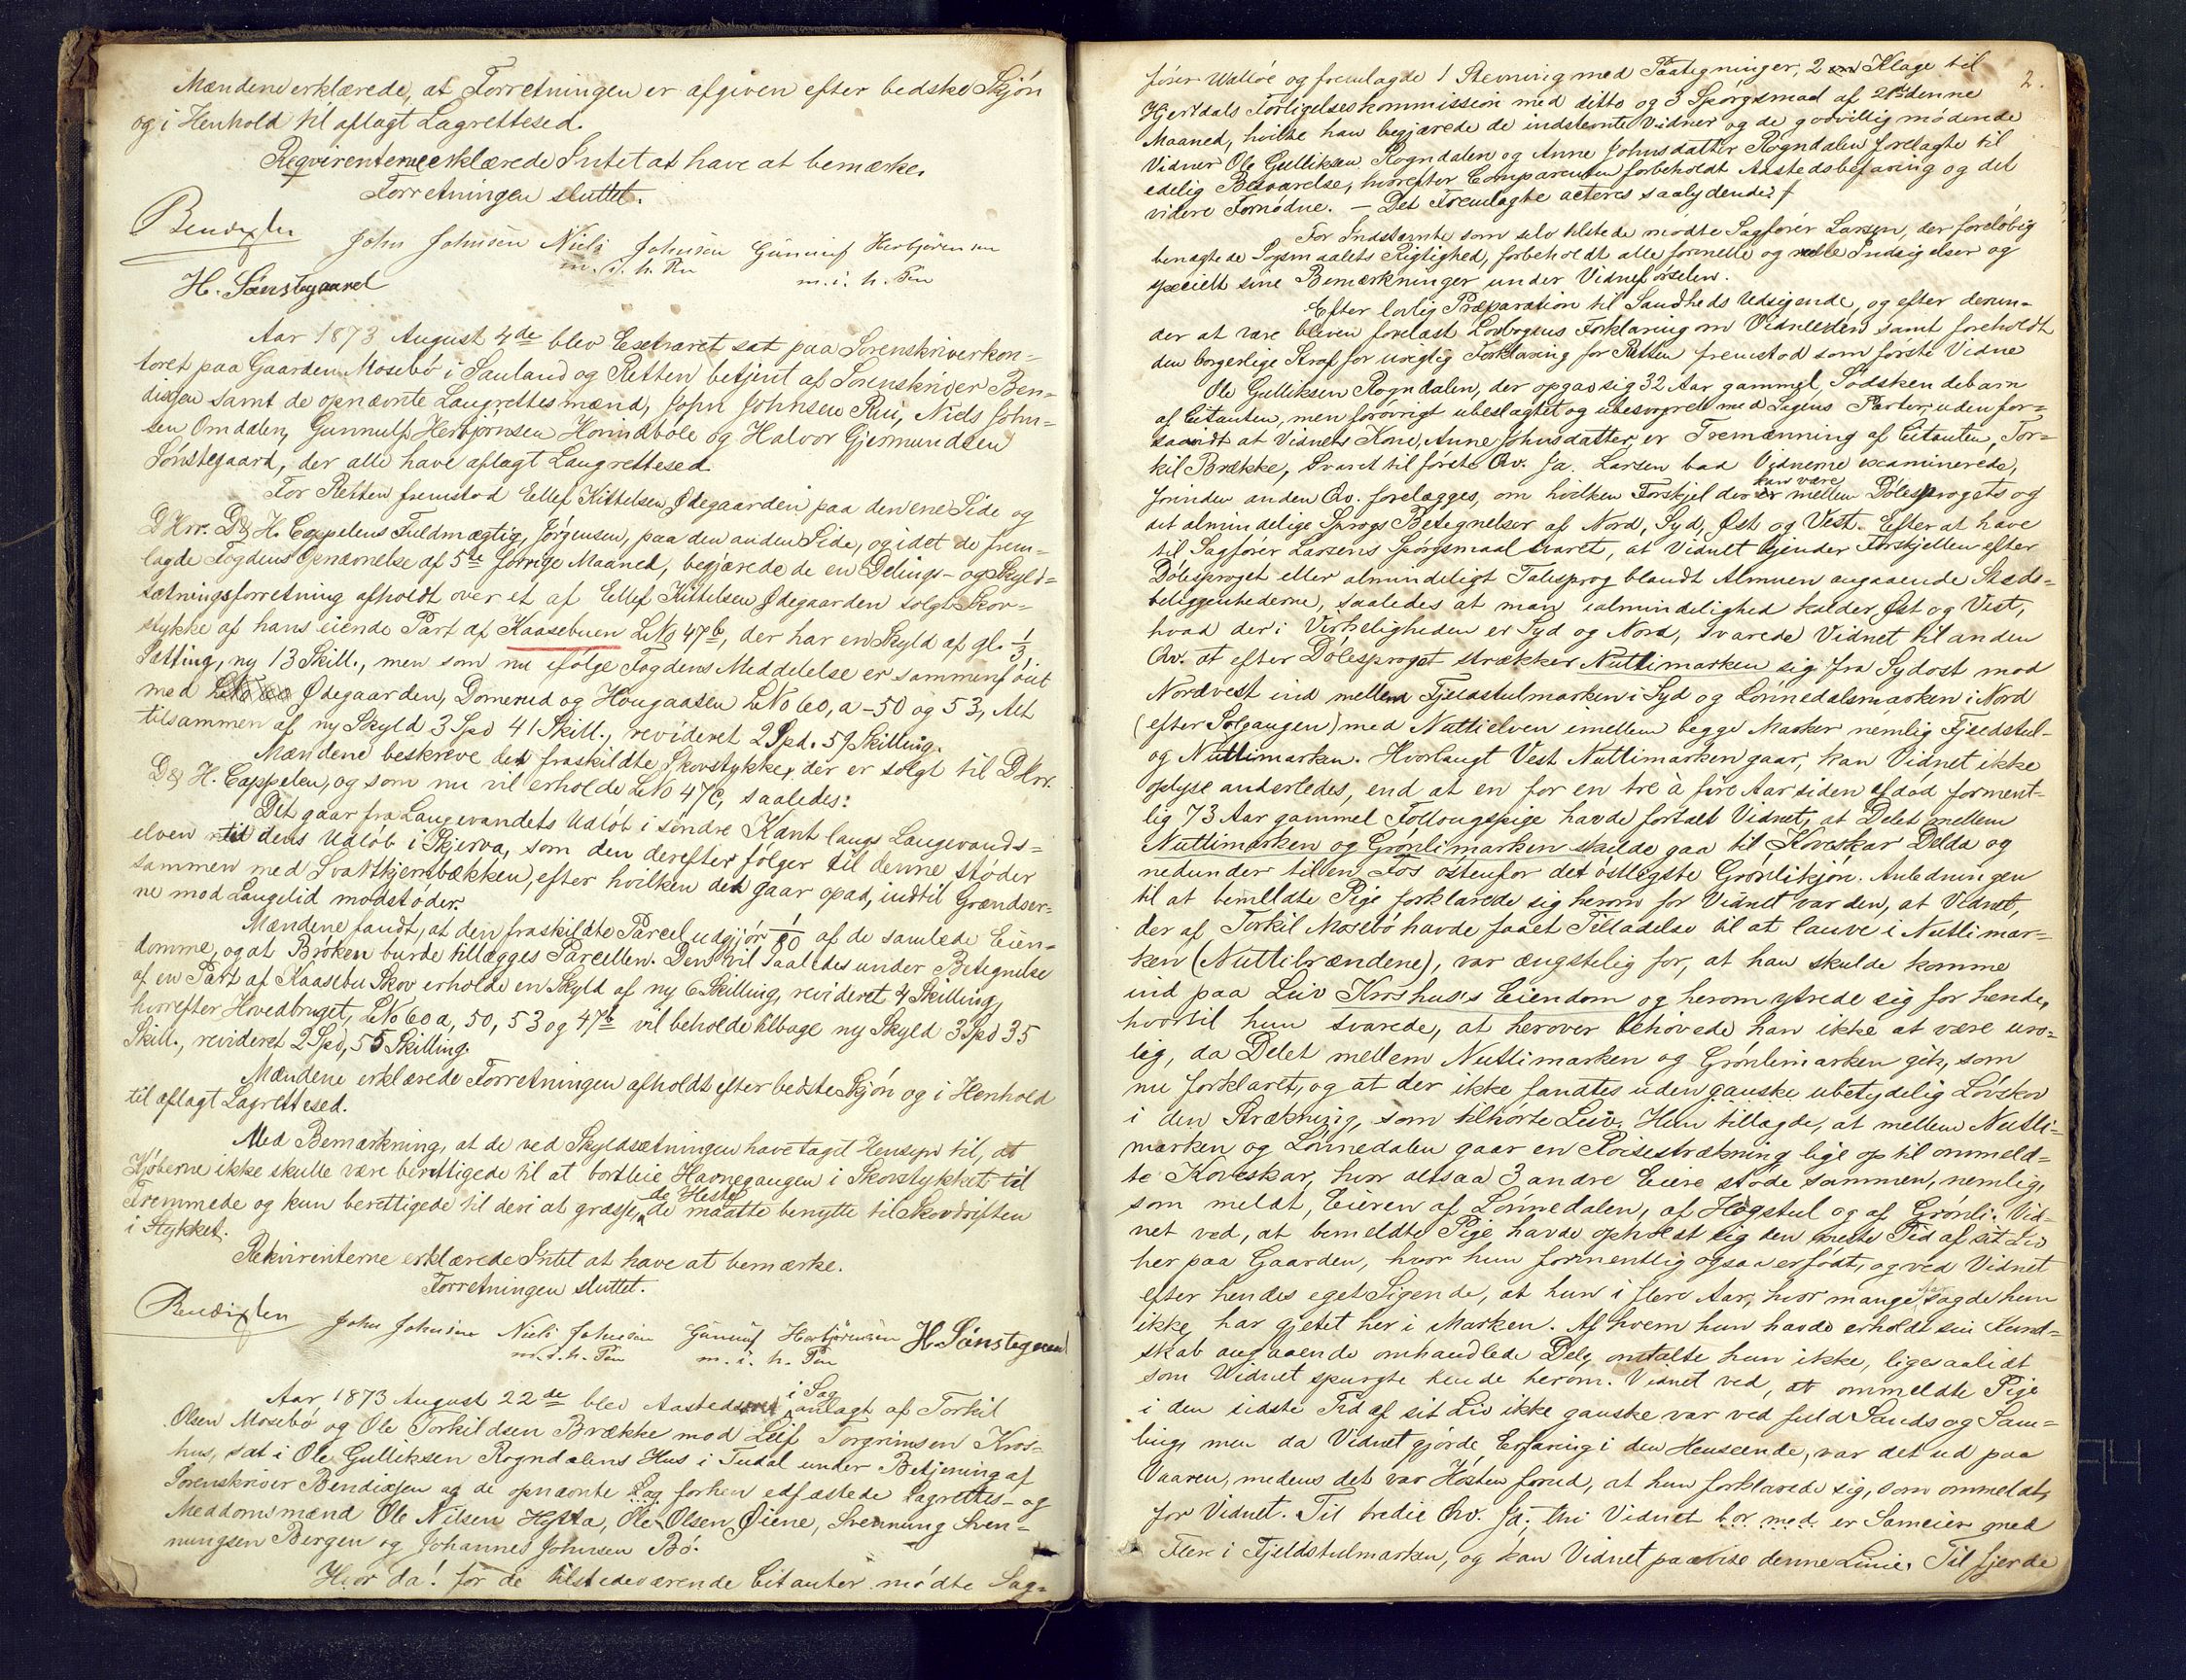 Mændene erklærede, at Forretningen er afgiven efter bedste Skjön
og i Henhold til aflagt Lagrettesed.
Reqvirenterne erklærede Intet at have at bemærke.
Forretningen sluttet.
Bendixen John Johnsen Niels Johnsen Gunnuf Herbjörnsen
m. i. h. Pen m. i. h. Pen
H. Sønstegaard
Aar 1873 August 4de blev Extraret sat paa Sorenskriverkon-
toret paa Gaarden Mosebö i Sauland og Retten betjent af Sorenskriver Ben-
dixsen samt de opnævnte Laugrettesmænd, John Johnsen Rui, Niels John-
sen Omdalen, Gunnulf Herbjørnsen Hovndbole og Halvor Gjermundsen
Sönstegaard, der alle have aflagt Laugrettesed.
For Retten fremstod Ellef Kittelsen Ødegaarden paa den ene Side og
DHrr. D & H. Cappelens Fuldmægtig, Jörgensen, paa den anden Side, og idet de frem-
lagde Fogdens Opnævnelse af 5te forrige Maaned, begjærede de en Delings- og Skyld-
sætningsforretning afholdt over et af Ellef Kittelsen Ødegaarden solgt Skov-
stykke af hans eiende Part af Kaasebuen LNo 47b, der har en Skyld af gl. 1/3
Sætting, ny 13 Skill., men som nu ifölge Fogdens Meddelelse er sammenföiet
med Ødegaarden, Domerud og Hougaasen LNo 60, a - 50 og 53, Alt
tilsammen af ny Skyld 3 Spd 41 Skill., revideret 2 Spd. 59 Skilling.
Mændene beskreve det fraskildte Skovstykke, der er solgt til DHrr.
D & H. Cappelen, og som nu vil erholde LNo 47c, saaledes:
Det gaar fra Langevandets Udlöb i söndre Kant langs Langevands-
elven til dens Udlöb i Skjerva, som den derefter fölger til denne stöder
sammen med Svartkjernbækken, efter hvilken det gaar opad, indtil Grændser-
ne mod Langelid modstöder.
Mændene fandt, at den fraskildte Parcel udgjör 1/60 af de samlede Eien-
domme, og at Bröken burde tillægges Parcellen. Den vil saaledes under Betegnelse
af en Part af Kaasebu Skov erholde en Skyld af ny 6 Skilling, revideret 4 Skilling,
hvorefter Hovedbruget, LNo 60a, 50, 53 og 47b vil beholde tilbage ny Skyld 3 Spd 35
Skill., revideret 2 Spd, 55 Skilling.
Mændene erklærede Forretningen afholdt efter bedste Skjön og i Henhold
til aflagt Lagrettesed.
Med Bemærkning, at de ved Skyldsætningen have taget Hensyn til, at
Kjøberne ikke skulle være berettigede til at bortleie Havnegangen i Skovstykket til
Fremmede og kun berettigede til deri at græsse, de Heste de maatte benytte til Skovdriften
i Stykket.
Rekvirenterne erklærede Intet at have at bemærke.
Forretningen sluttet.
Bendixen John Johnsen Niels Johnsen Gunnuf Herbjörnsen H. Sønstegaard
m. i. h. Pen m. i. h. Pen
Aar 1873 August 22de blev Aastedsret i Sag anlagt af Torkil
Olsen Mosebö og Ole Torkildsen Brække mod Leif Torgrimsen Kros-
hus, sat i Ole Gulliksen Rogndalens Hus i Tudal under Betjening af
Sorenskriver Bendixsen og de opnævnte Lag forhen edfæstede Lagrettes- og
Meddomsmænd Ole Nilsen Hytta, Ole Olsen Øiene, Svennung Sven-
nungsen Bergen og Johannes Johnsen Bö.
Hvor da! for de tilstedeværende Citanter mödte Sag-
2.
förer Wallöe og fremlagde 1 Stevning med Paategninger, 2 Klage til
Hjertdals Forligelseskommission med ditto og 3 Spörgsmaal af 21de denne
Maaned, hvilke han begjærede de indstevnte Vidner og de godvillig mödende
Vidner Ole Gulliksen Rogndalen og Anne Johnsdatter Rogndalen forelagte til
edelig Besvarelse, hvorefter Comparenten forbeholdt Aastedsbefaring og det
videre Fornödne. — Det Fremlagte acteres saalydende:
For Indstævnte som selv tilstede mödte Sagförer Larsen, der foreløbig
benægtede Søgsmaalets Rigtighed, forbeholdt alle formelle og reelle Indsigelser og
specielt sine Bemærkninger under Vidneförselen.
Efter lovlig Præparation til Sandheds Udsigende, og efter derun-
der at være bleven forelæst Lovbogens Forklaring om Vidneeden samt foreholdt
den borgerlige Straf for urigtig Forklaring for Retten fremstod som förste Vidne
Ole Gulliksen Rogndalen, der opgav sig 32 Aar gammel, Södskendebarn
af Citanten, men forövrigt ubeslægtet og ubesvogret med Sagens Parter, uden for-
saavidt at Vidnets Kone, Anne Johnsdatter, er Tremænning af Citanten, Tor-
kil Brække, Svaret til förste Qv. Ja. Larsen bad Vidnerne examinerede,
forinden anden Qv. forelægges, om hvilken Forskjel der kan være mellem Dölesprogets og
det almindelige Sprogs Betegnelser af Nord, Syd, Øst og Vest. Efter at have
til Sagförer Larsens Spörgsmaal svaret, at Vidnet kjender Forskjellen efter
Dölesproget eller almindeligt Talesprog blandt Almuen angaaende Steds-
beliggenhederne, saaledes at man i almindelighed kalder, Øst og Vest,
hvad der i Virkeligheden er Syd og Nord, svarede Vidnet til anden
Qv. at efter Dölesproget strækker Nutlimarken sig fra Sydost mod
Nordvest ind mellem Fjeldstulmarken i Syd og Lönnedalsmarken i Nord
(efter Solgangen) med Nuttielven imellem begge Marker nemlig Fjeldstul-
og Nuttimarken. Hvorlangt Vest Nutlimarken gaar, kan Vidnet ikke
oplyse anderledes, end at en for en tre à fire Aar siden afdød forment-
lig 73 Aar gammel Follougspige havde fortalt Vidnet, at Delet mellem
Nutlimarken og Grönlimarken skulde gaa til Koveskar Delda og
nedunder til en Fos østenfor det östligste Grönlikjön. Anledningen
til at bemeldte Pige forklarede sig herom for Vidnet var den, at Vidnet,
der af Torkil Mosebö havde faaet Tilladelse til at lauve i Nutlimar-
ken (Nuttibrændene), var ængstelig for, at han skulde komme
ind paa Leiv Kroshus's Eiendom og herom ytrede sig for hende,
hvortil hun svarede, at herover behövede han ikke at være uro-
lig, da Delet mellem Nutlimarken og Grönlimarken gik, som
nu forklaret, og at der ikke fandtes uden ganske ubetydelig Lövskov
i den Strækning, som tilhørte Leiv. Hun tillagde, at mellem Nutli-
marken og Lönnedalen gaar en Roisestrækning lige op til ommeld-
te Koveskar, hvor altsaa 3 andre Eiere støde sammen, nemlig,
som meldt, Eieren af Lönnedalen, af Högstul og af Grönli. Vid-
net ved, at bemeldte Pige havde opholdt sig den meste Tid af sit Liv
her paa Gaarden, hvor hun formentlig ogsaa er født, og ved Vidnet
efter hendes eget Sigende, at hun i flere Aar, hvor mange sagde hun
ikke, har gjetet her i Marken. Af hvem hun havde erholdt sin Kund-
skab angaaende omhandlede Dele, omtalte hun ikke, ligesaalidt
som Vidnet spurgte hende herom. Vidnet ved, at ommeldte Pige
i den sidste Tid af sit Liv ikke ganske var ved fuld Sands og Sam-
ling, men da Vidnet gjörde Erfaring i den Henseende, var det ud paa
Vaaren, medens det var Hösten forud, at hun forklarede sig, som ommeldt,
for Vidnet. Til tredie Qv. Ja, thi Vidnet bor med er Sameier med
Flere i Fjeldstulmarken, og kan Vidnet paavise denne Linie. Til fjerde